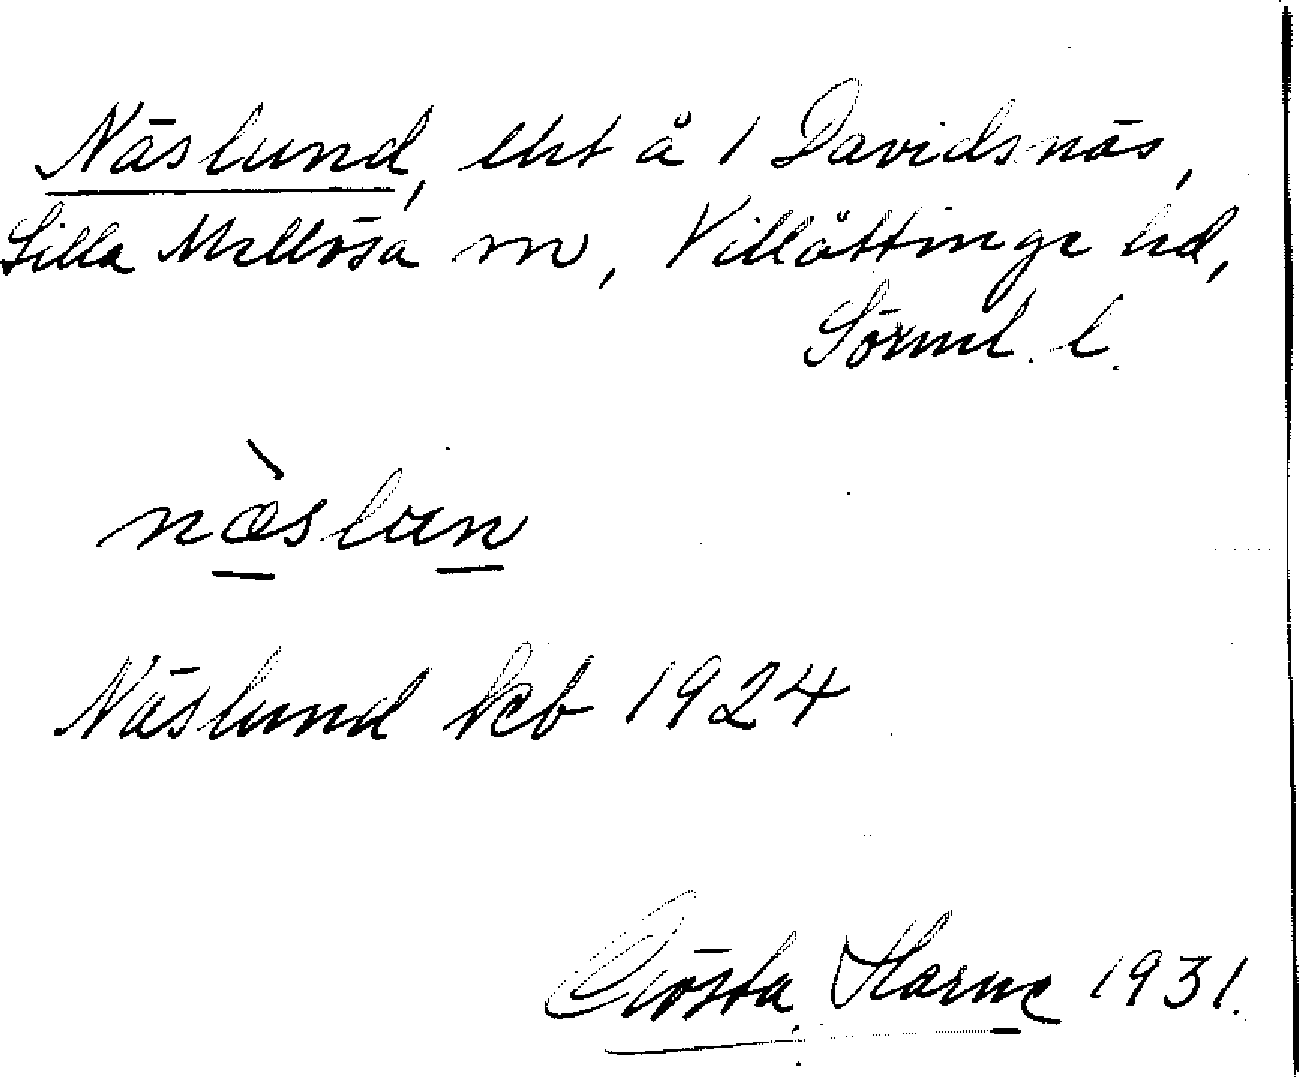 Näslund, lht å 1 Davidsnäs,
Lilla Mellösa sn, Villåttinge hd,
Sörml. l.
næ̀slun
Näslund kb 1924
Gösta 1931.